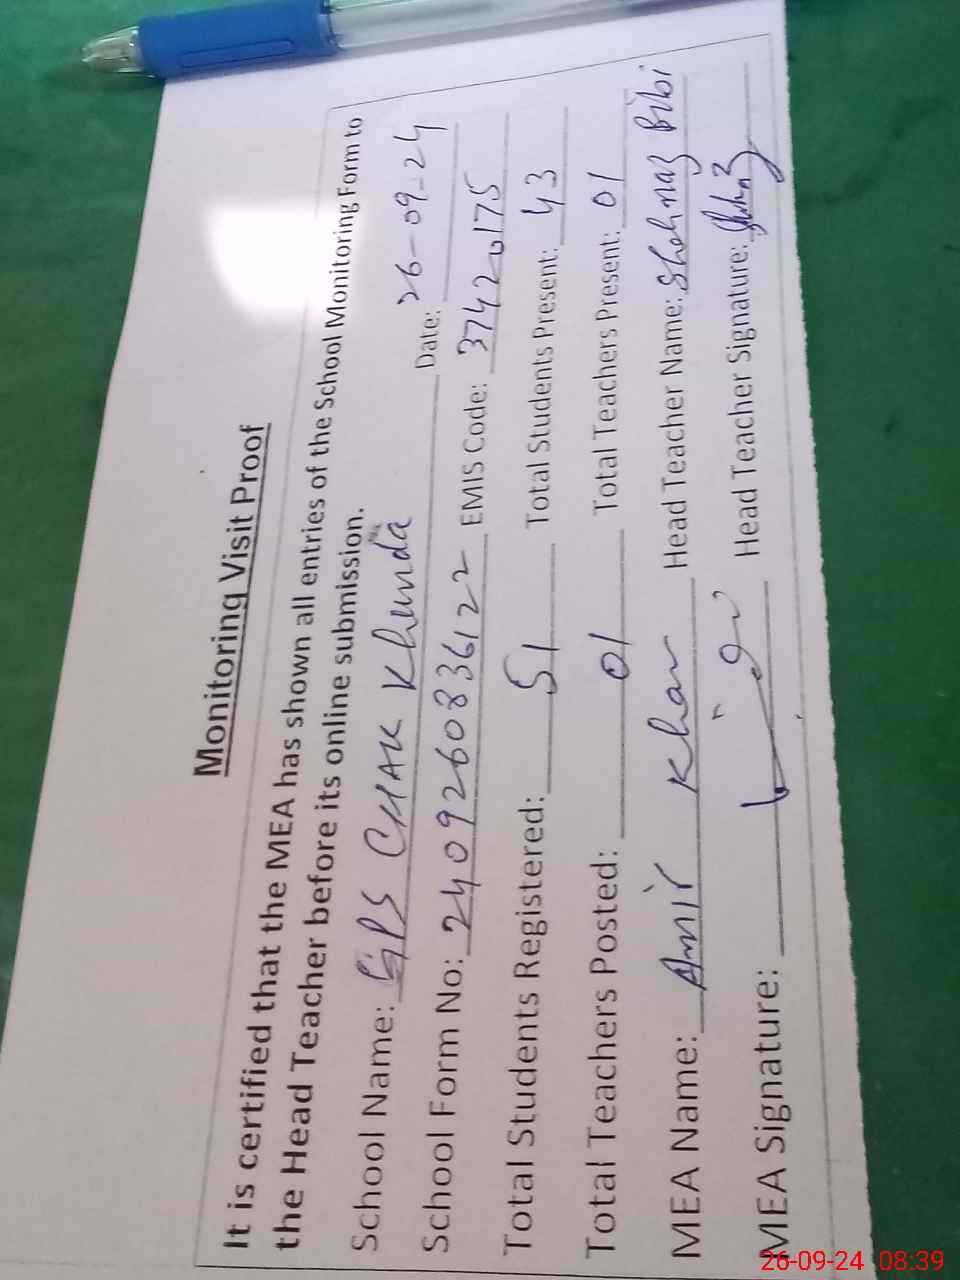 Monitoring Visit Proof
It is certified that the MEA has shown all entries of the School Monitoring Form to
the Head Teacher before its online submission.
School Name: GPS CHAK Khunda Date: 26-09-24
School Form No: 2409260836122 EMIS Code: 37420175
Total Students Registered: 51 Total Students Present: 43
Total Teachers Posted: 01 Total Teachers Present: 01
MEA Name: Amir Khan Head Teacher Name: Shehnaz Bibi
MEA Signature: Head Teacher Signature:
26-09-24 08:39